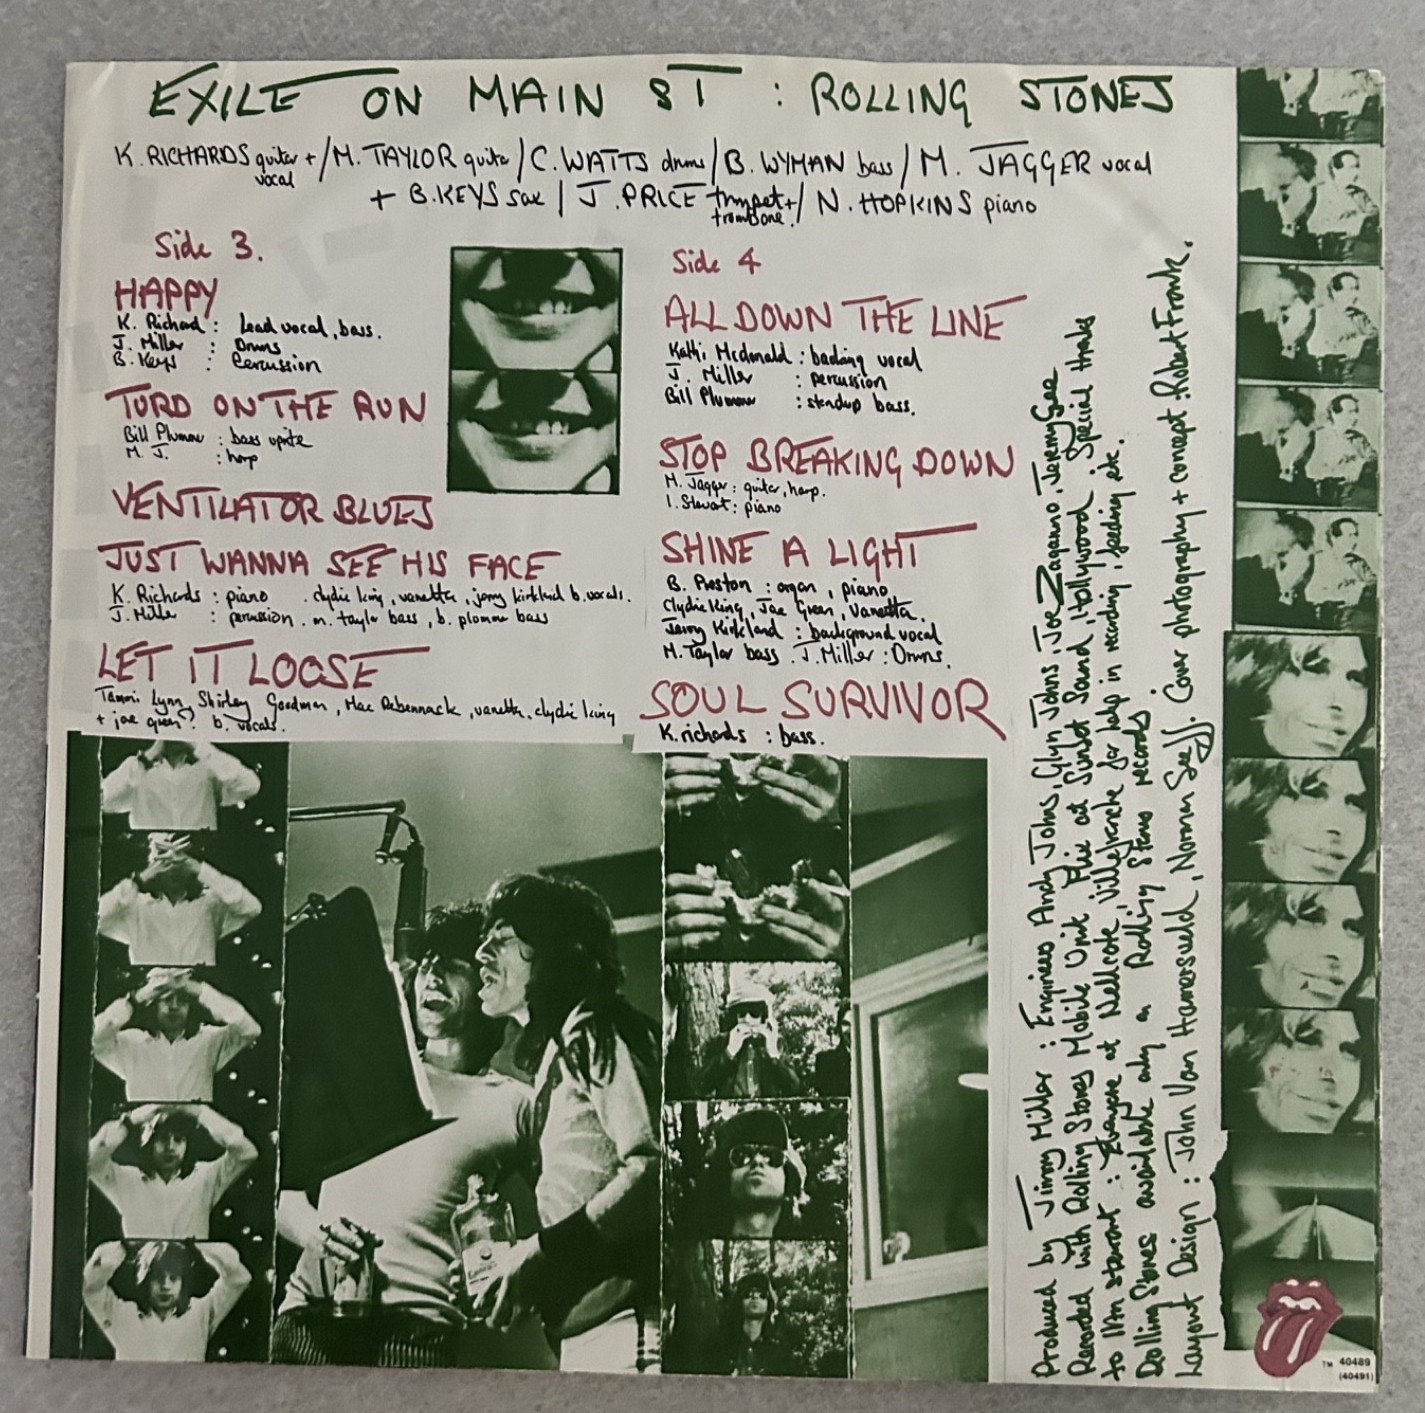 EXILE ON MAIN ST : ROLLING STONES
K. RICHARDS guitar + / M. TAYLOR guitar / C. WATTS drums / B. WYMAN bass / M. JAGGER vocal
vocal
+ B. KEYS sax / J. PRICE trumpet + / N. HOPKINS piano
trombone.
Side 3.
HAPPY
K. Richard : Lead vocal, bass.
J. Miller : Drums
B. Keys : Percussion
TURD ON THE RUN
Bill Plummer : bass uprite
M. J. : harp
VENTILATOR BLUES
JUST WANNA SEE HIS FACE
K. Richards : piano . clydie king, vanetta, jerry kirkland b. vocals.
J. Miller : percussion . m. taylor bass, b. plummer bass
LET IT LOOSE
Tammi Lynn, Shirley Goodman, Mac Rebennack, vanetta, clydie king
+ joe green? b. vocals.
Side 4
ALL DOWN THE LINE
Kathi Mcdonald : backing vocal
J. Miller : percussion
Bill Plummer : standup bass.
STOP BREAKING DOWN
M. Jagger : guitar, harp.
I. Stewart : piano
SHINE A LIGHT
B. Preston : organ, piano
Clydie King, Joe Green, Vanetta.
Jerry Kirkland : background vocal
M. Taylor bass . J. Miller : Drums.
SOUL SURVIVOR
K. richards : bass.
Produced by Jimmy Miller : Engineers Andy Johns, Glyn Johns, Joe Zaganno, Jeremy Gee
Recorded with Rolling Stones Mobile Unit Mix at Sunset Sound, Hollywood . Special thanks
to Ian stewart : at Nellcote, Villefranche for help in recording, feeding etc.
Rolling Stones available only on Rolling Stones records
Layout Design : John Van Hamersveld, Norman Seeff. Cover photography + concept : Robert Frank.
TM 40489
(40491)